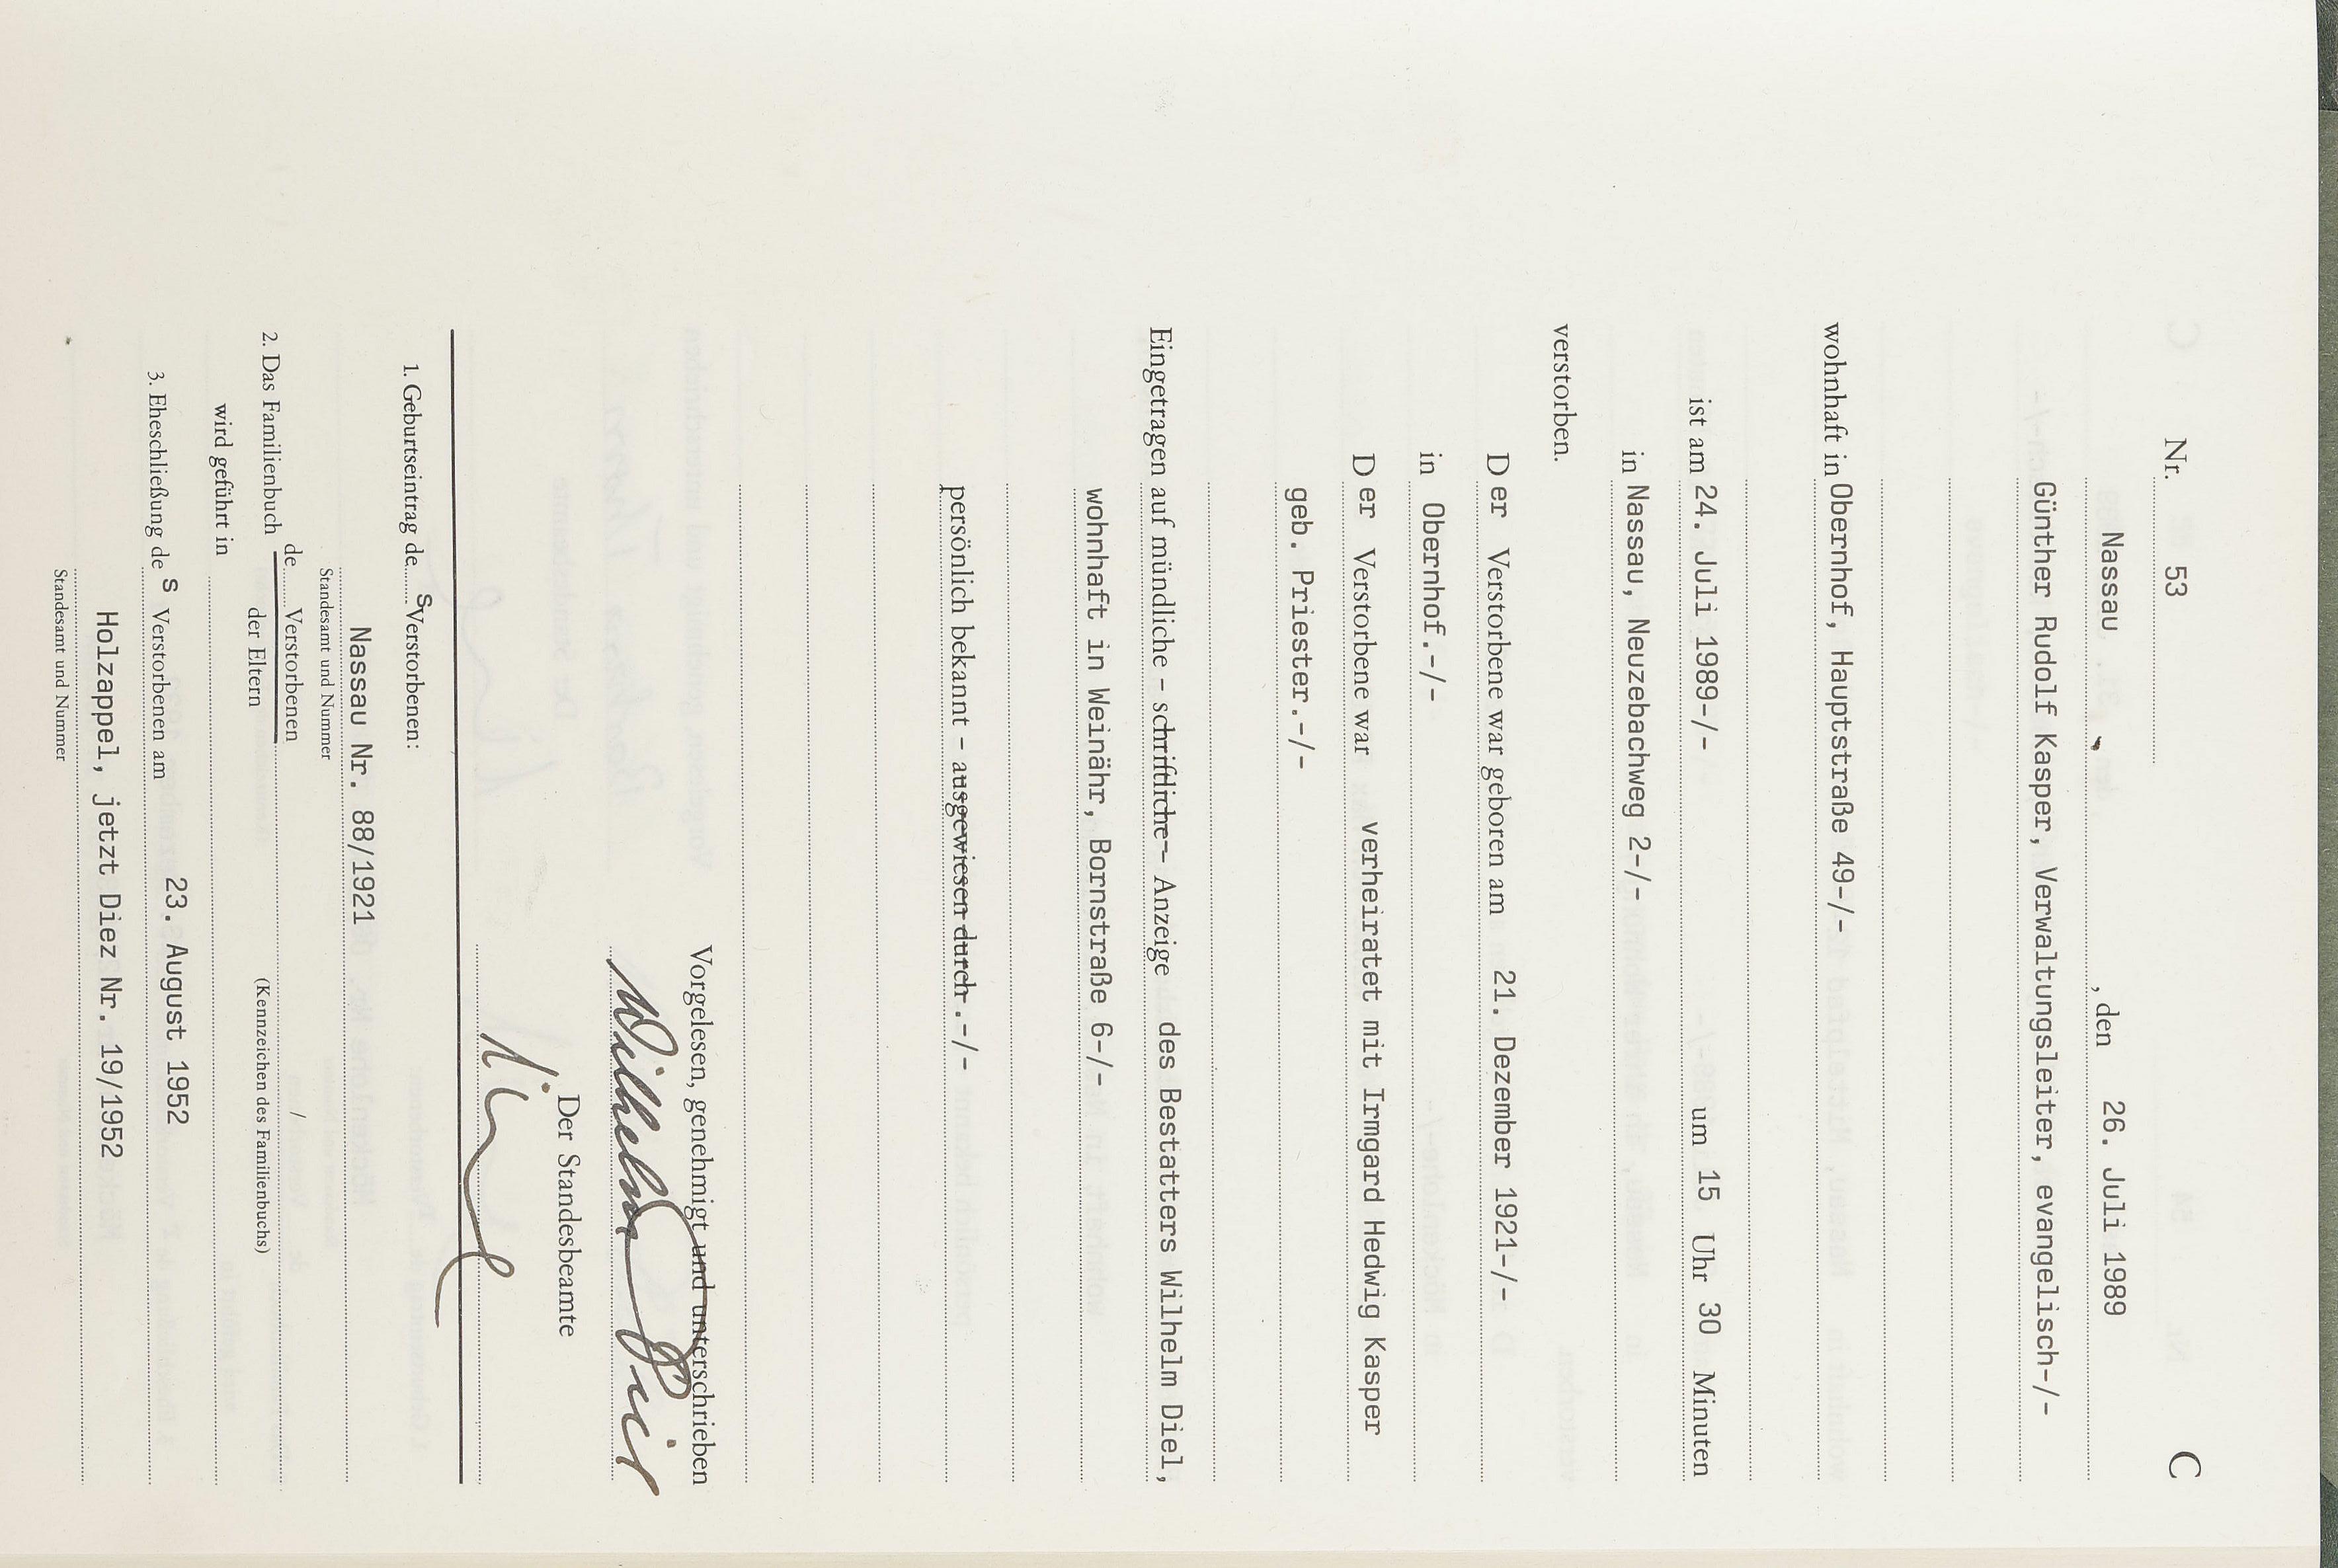 Nr. 53 C
Nassau, , den 26. Juli 1989
Günther Rudolf Kasper, Verwaltungsleiter, evangelisch-/-
wohnhaft in Obernhof, Hauptstraße 49-/-
ist am 24. Juli 1989-/- um 15 Uhr 30 Minuten
in Nassau, Neuzebachweg 2-/-
verstorben.
D er Verstorbene war geboren am 21. Dezember 1921-/-
in Obernhof.-/-
D er Verstorbene war verheiratet mit Irmgard Hedwig Kasper
geb. Priester.-/-
Eingetragen auf mündliche – schriftliche – Anzeige des Bestatters Wilhelm Diel,
wohnhaft in Weinähr, Bornstraße 6-/-
persönlich bekannt – ausgewiesen durch.-/-
Vorgelesen, genehmigt und unterschrieben
Wilhelm Diel
Der Standesbeamte
1. Geburtseintrag de s Verstorbenen:
Nassau Nr. 88/1921
Standesamt und Nummer
2. Das Familienbuch de Verstorbenen
der Eltern (Kennzeichen des Familienbuchs)
wird geführt in
3. Eheschließung de s Verstorbenen am 23. August 1952
Holzappel, jetzt Diez Nr. 19/1952
Standesamt und Nummer